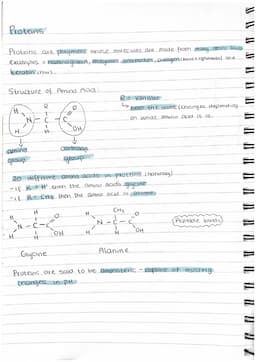 Proteins
Proteins are polymers whose molecules are made from many amino acids
Examples - haemoglobin, enzymes, antibodies, collagen (bone + ligaments) and
keratin (hair).
Structure of Amino Acid:
R = variable
R
H
O
N - C - C
H
H
OH
amino
group
carboxyl
group
20 different amino acids in proteins
- if R = H then the amino acid's glycine
- if R = CH3 then the amino acid is alanine
H
H
O
N - C - C
H
H
OH
H
CH3
O
N - C - C
H
H
OH
Peptide bonds
Glycine
Alanine
Proteins are said to be amphoteric - capable of resisting
changes in pH